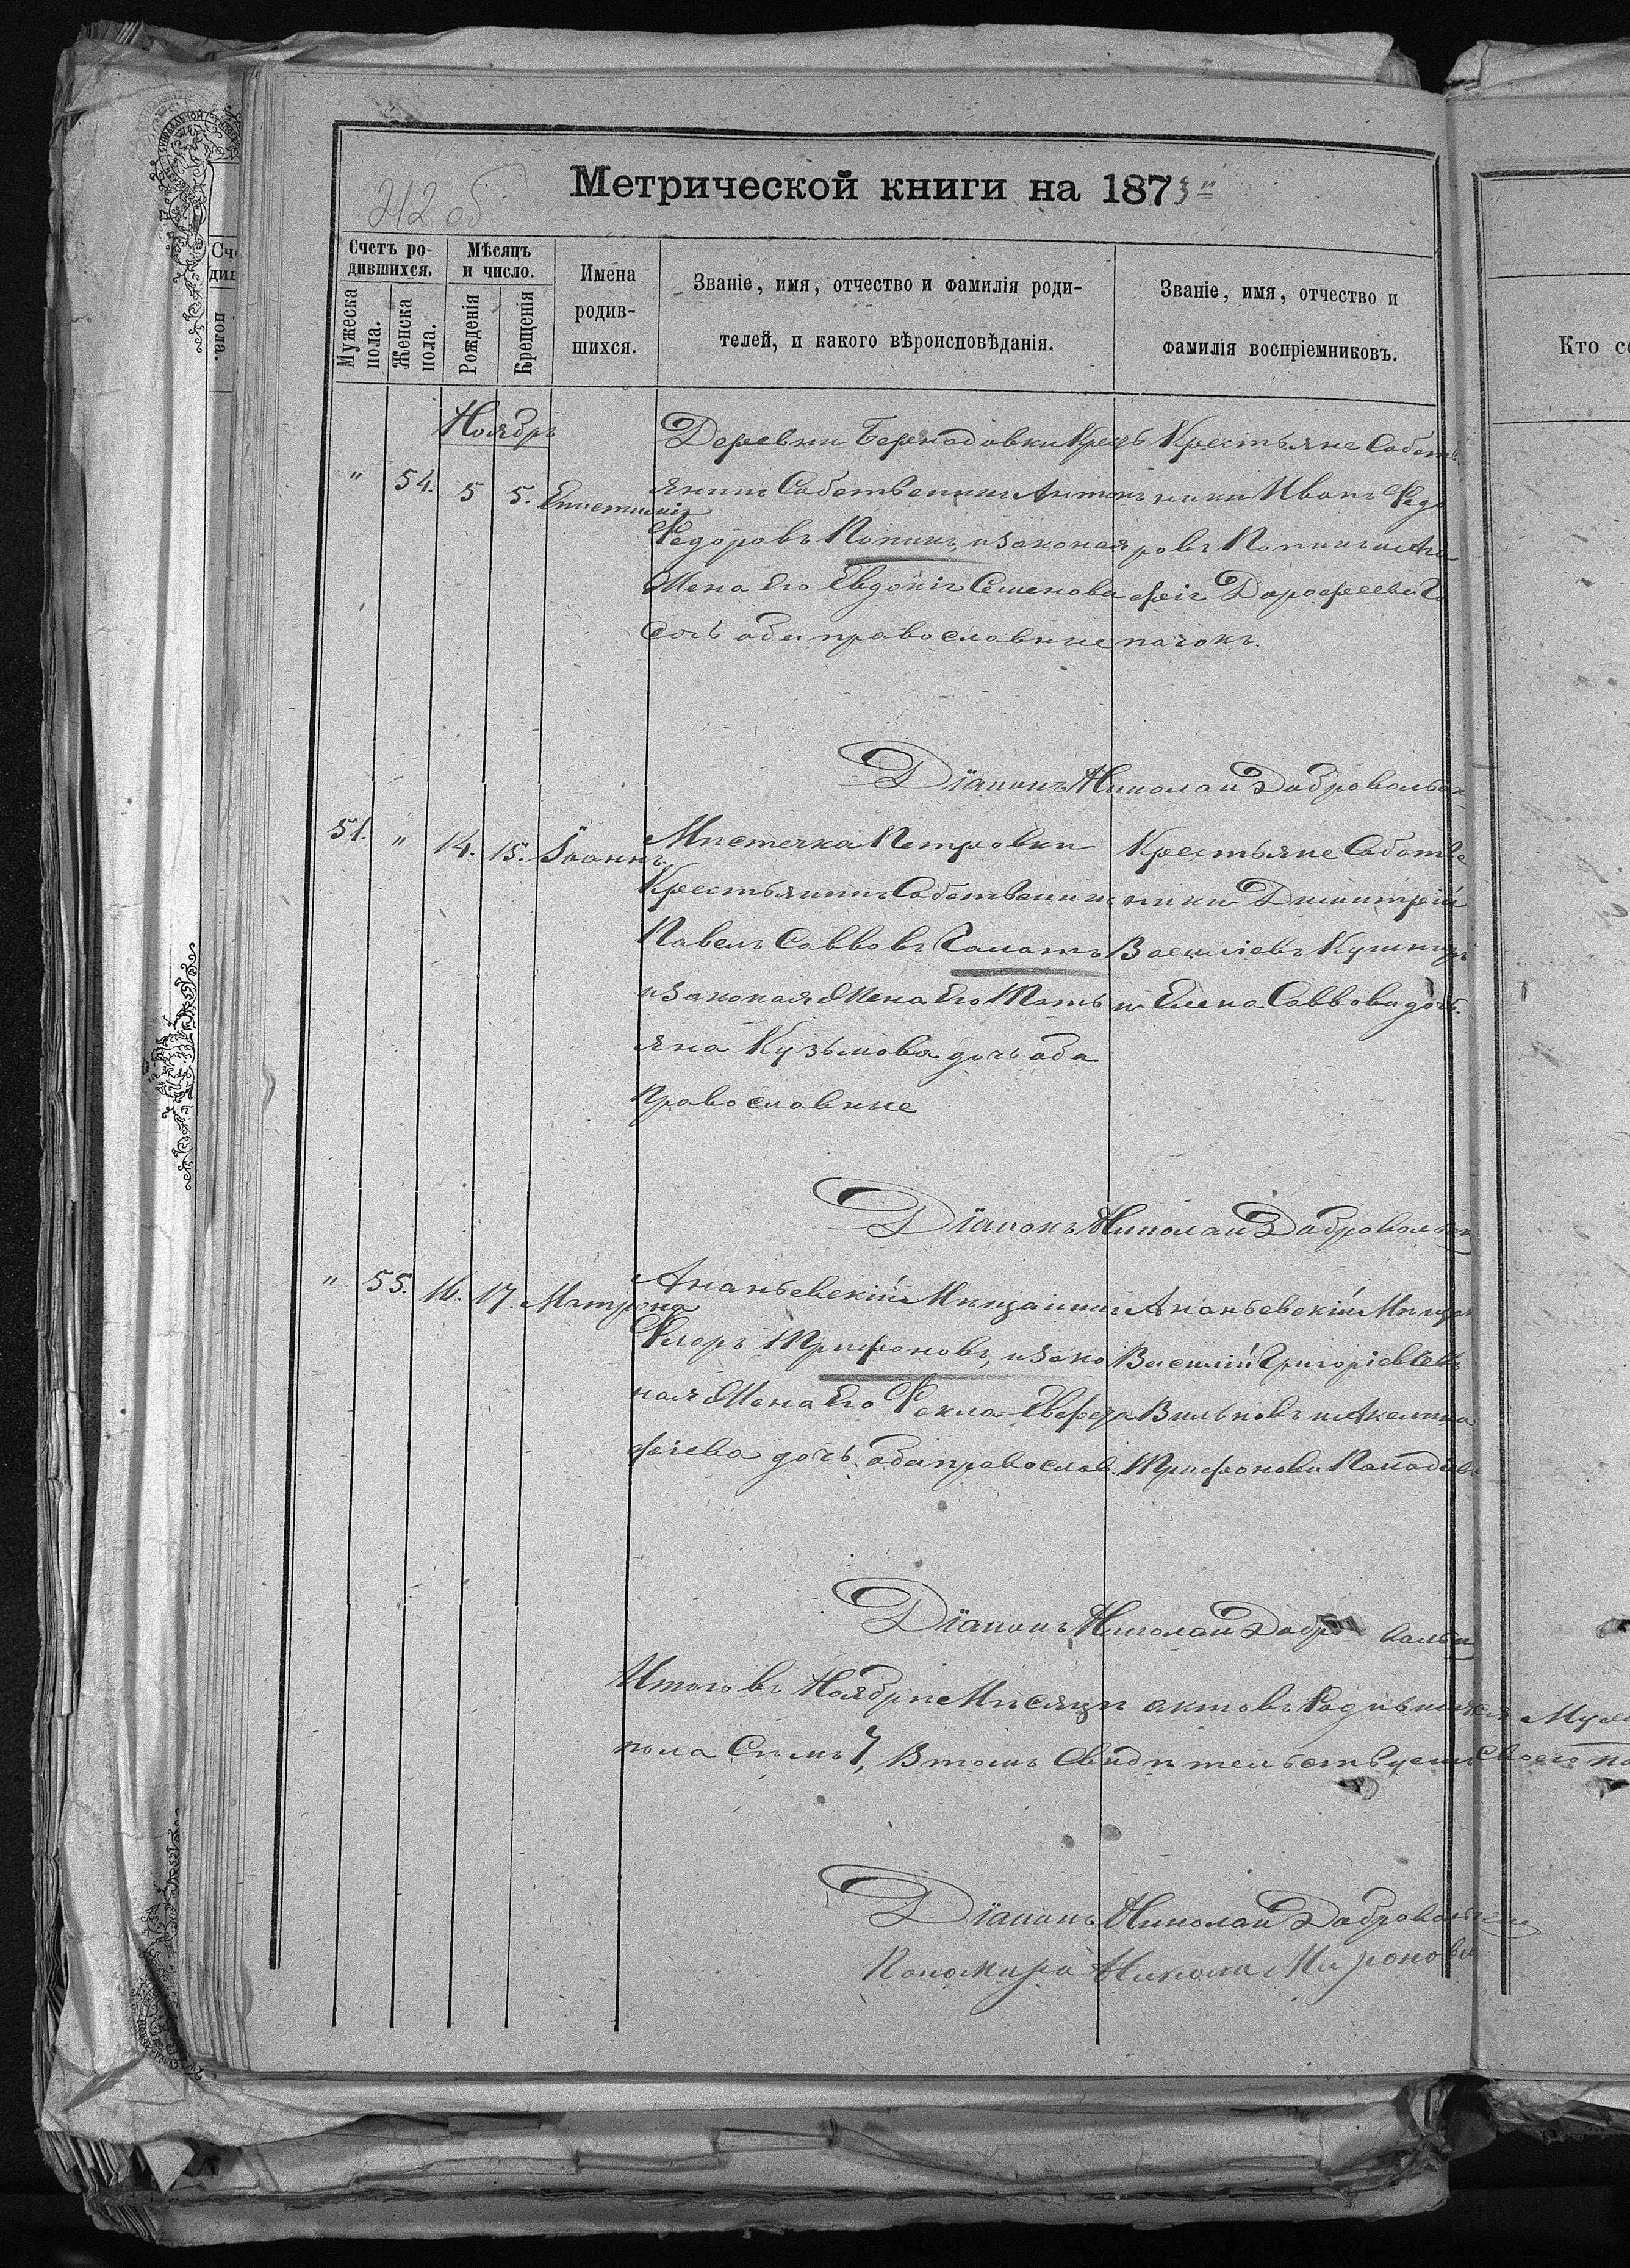 Метрической книги на 1873
212 об
Счетъ ро-
дившихся.
Мѣсяцъ
и число.
Мужеска
пола.
Женска
пола.
Рожденія
Крещенія
Имена
родив-
шихся.
Званіе, имя, отчество и фамилія роди-
телей, и какого вѣроисповѣданія.
Званіе, имя, отчество и
фамилія воспріемниковъ.
Кто со
Ноябрь
" 54. 5 5.
Деревни Крестъ
янинъ Собственникъ Антонъ
Федоровъ Попикъ, и законая
Жена Его Евдокія Семенова
дочь оба православные
Крестьяне Собств.
ники Иванъ Федо
ровъ Попикъ и Ага
фія Дорофеева
Діаконъ Николай Добровольск
51. " 14. 15. Іоаннъ.
Мистечка Петровки
Крестьянинъ Собственник
Павелъ Саввовъ
и законая Жена Его Тать
яна Кузьмова дочь оба
Православные
Крестьяне Собстве
ники Димитрій
Василіевъ
и Елена Саввова дочь.
Діаконъ Николай Добровольск
" 55. 16. 17. Матрона
Ананьевскій Мищанинъ
Флоръ Трифоновъ, и зако
ная Жена Его Фекла
фіева дочь оба православ.
Ананьевскій Мищан
Василій Григоріевъ
и Акелина
Трифонова
Діаконъ Николай Добровольск
Итого въ Ноябри Мисяци актовъ Родившихся Муж
пола Симъ 7, В томъ Свидительствуемъ Своего по
Діаконъ Николай Добровольскій
Пономаръ Николай Мироновъ